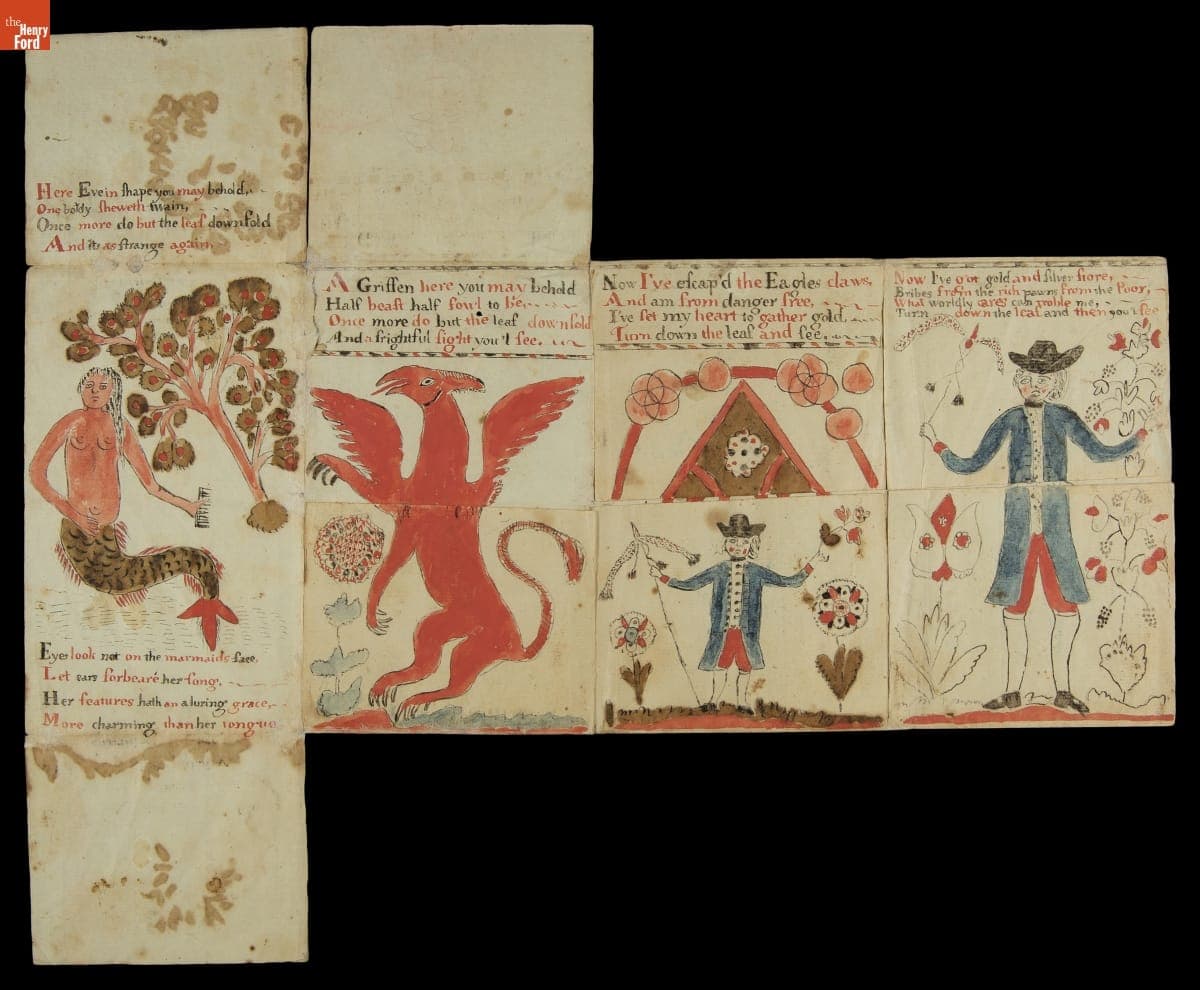 the
Henry
Ford
Here Eve in shape you may behold,
One body sheweth twain,
Once more do but the leaf downfold
And its as strange again.
A Griffen here you may behold
Half beast half fowl to be
Once more do but the leaf downfold
And a frightful sight you'l see.
Now I've escap'd the Eagles claws,
And am from danger free,
I've set my heart to gather gold,
Turn down the leaf and see.
Now I've got gold and silver store,
Bribes from the rich pawns from the Poor,
What worldly cares can troble me,
Turn down the leaf and then you'l see
Eyes look not on the marmaids face,
Let ears forbeare her song,
Her features hath an aluring grace,
More charming than her tongue